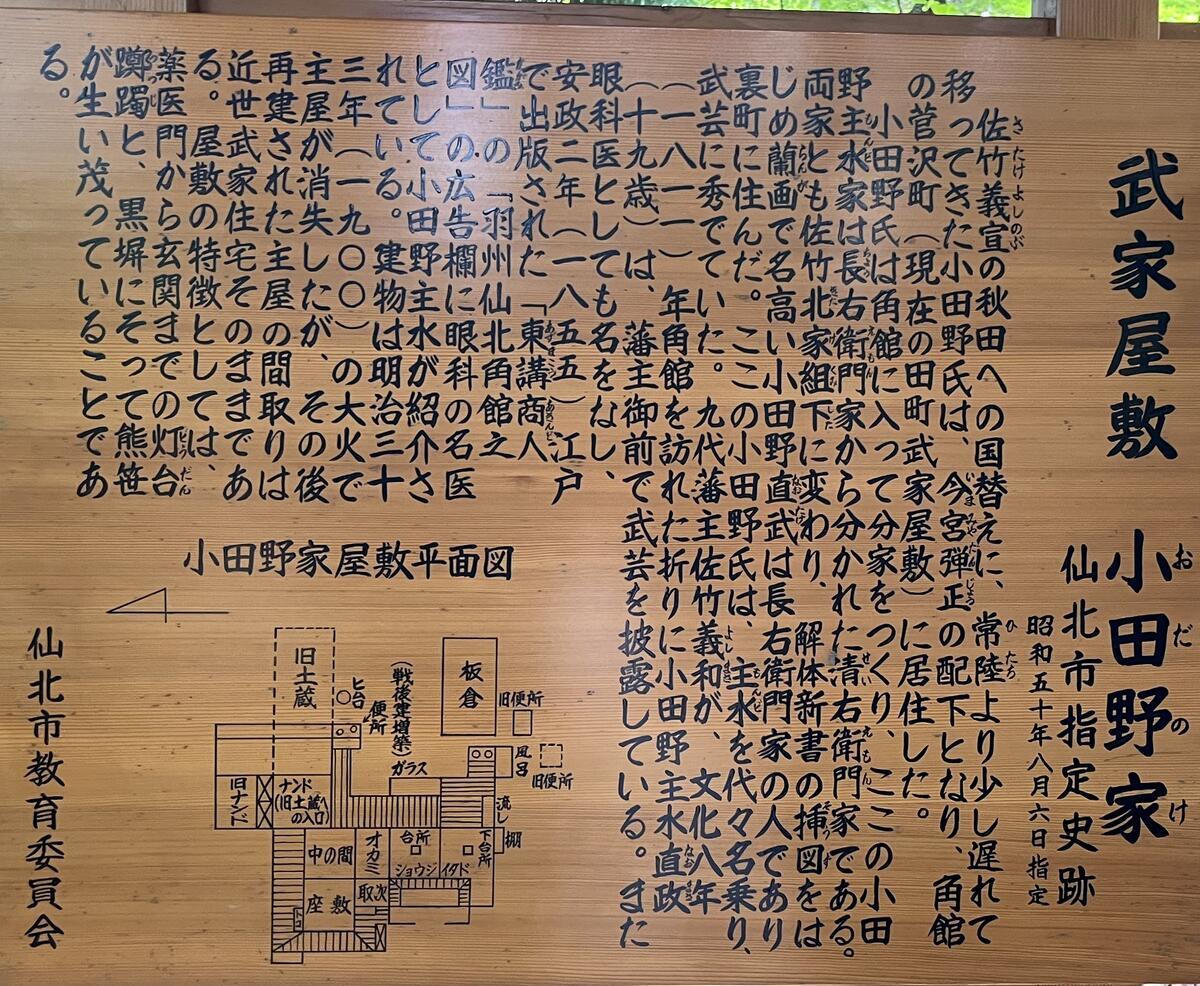 武家屋敷 小田野家
仙北市指定史跡
昭和五十年八月六日指定
佐竹義宣の秋田への国替えに、常陸より少し遅れて
移ってきた小田野氏は、今宮弾正の配下となり、角館
の菅沢町（現在の田町武家屋敷）に居住した。
小田野氏は角館に入って分家をつくり、ここの小田
野主水家は長右衛門家から分かれた清右衛門家である。
両家とも佐竹北家組下に変わり、解体新書の挿図をは
じめ蘭画で名高い小田野直武は長右衛門家の人であり
裏町に住んだ。ここの小田野氏は、主水を代々名乗り、
武芸に秀でていた。九代藩主佐竹義和が、文化八年
（一八一一）年角館を訪れた折りに小田野主水直政
（十九歳）は、藩主御前で武芸を披露している。また
眼科医としても名をなし、
安政二年（一八五五）江戸
で出版された「東講商人
鑑」の「羽州仙北角館之
図」の広告欄に眼科の名医
として小田野主水が紹介さ
れている。建物は明治三十
三年（一九〇〇）の大火で
主屋が消失したが、その後
再建された主屋の間取りは
近世武家住宅そのままであ
る。屋敷の特徴としては、
薬医門から玄関までの灯台
躑躅と、黒塀にそって熊笹
が生い茂っていることであ
る。
小田野家屋敷平面図
旧土蔵
便所
（戦後建増築）
ガラス
板倉
旧便所
風呂
旧便所
流し
棚
旧ナンド
ナンド
（旧土蔵への入口）
中の間
オカミ
台所
下台所
ショウジ
イタド
座敷
取次
トコ
仙北市教育委員会